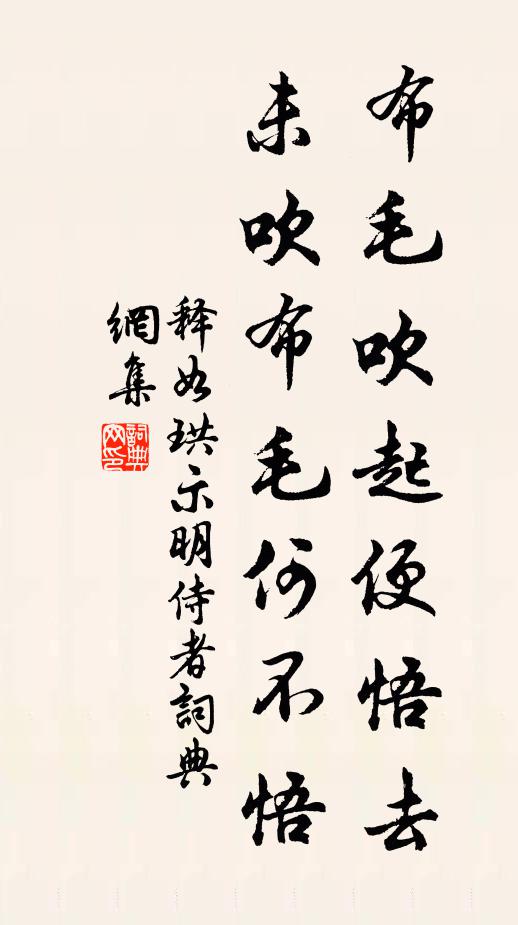 布毛吹起便悟去
未吹布毛何不悟
释如珙示明侍者詞典
網集
詞典
网印